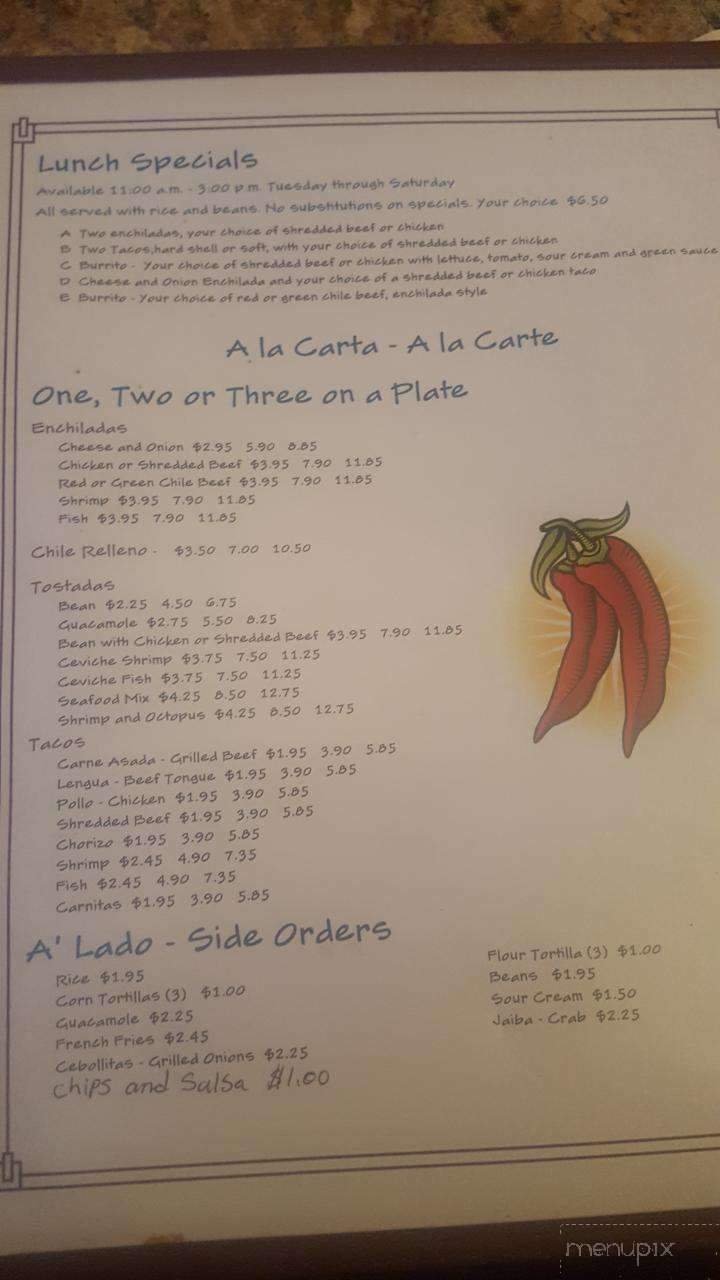 Lunch Specials
Available 11:00 a.m. - 3:00 p.m. Tuesday through Saturday
All served with rice and beans. No substitutions on specials. Your choice $6.50
A Two enchiladas, your choice of shredded beef or chicken
B Two Tacos,hard shell or soft, with your choice of shredded beef or chicken
C Burrito - Your choice of shredded beef or chicken with lettuce, tomato, sour cream and green sauce
D Cheese and Onion Enchilada and your choice of a shredded beef or chicken taco
E Burrito - Your choice of red or green chile beef, enchilada style
A la Carta - A la Carte
One, Two or Three on a Plate
Enchiladas
Cheese and Onion $2.95 5.90 8.85
Chicken or Shredded Beef $3.95 7.90 11.85
Red or Green Chile Beef $3.95 7.90 11.85
Shrimp $3.95 7.90 11.85
Fish $3.95 7.90 11.85
Chile Relleno - $3.50 7.00 10.50
Tostadas
Bean $2.25 4.50 6.75
Guacamole $2.75 5.50 8.25
Bean with Chicken or Shredded Beef $3.95 7.90 11.85
Ceviche Shrimp $3.75 7.50 11.25
Ceviche Fish $3.75 7.50 11.25
Seafood Mix $4.25 8.50 12.75
Shrimp and Octopus $4.25 8.50 12.75
Tacos
Carne Asada - Grilled Beef $1.95 3.90 5.85
Lengua - Beef Tongue $1.95 3.90 5.85
Pollo - Chicken $1.95 3.90 5.85
Shredded Beef $1.95 3.90 5.85
Chorizo $1.95 3.90 5.85
Shrimp $2.45 4.90 7.35
Fish $2.45 4.90 7.35
Carnitas $1.95 3.90 5.85
A' Lado - Side Orders
Rice $1.95
Corn Tortillas (3) $1.00
Guacamole $2.25
French Fries $2.45
Cebollitas - Grilled Onions $2.25
Chips and Salsa $1.00
Flour Tortilla (3) $1.00
Beans $1.95
Sour Cream $1.50
Jaiba - Crab $2.25
menupix